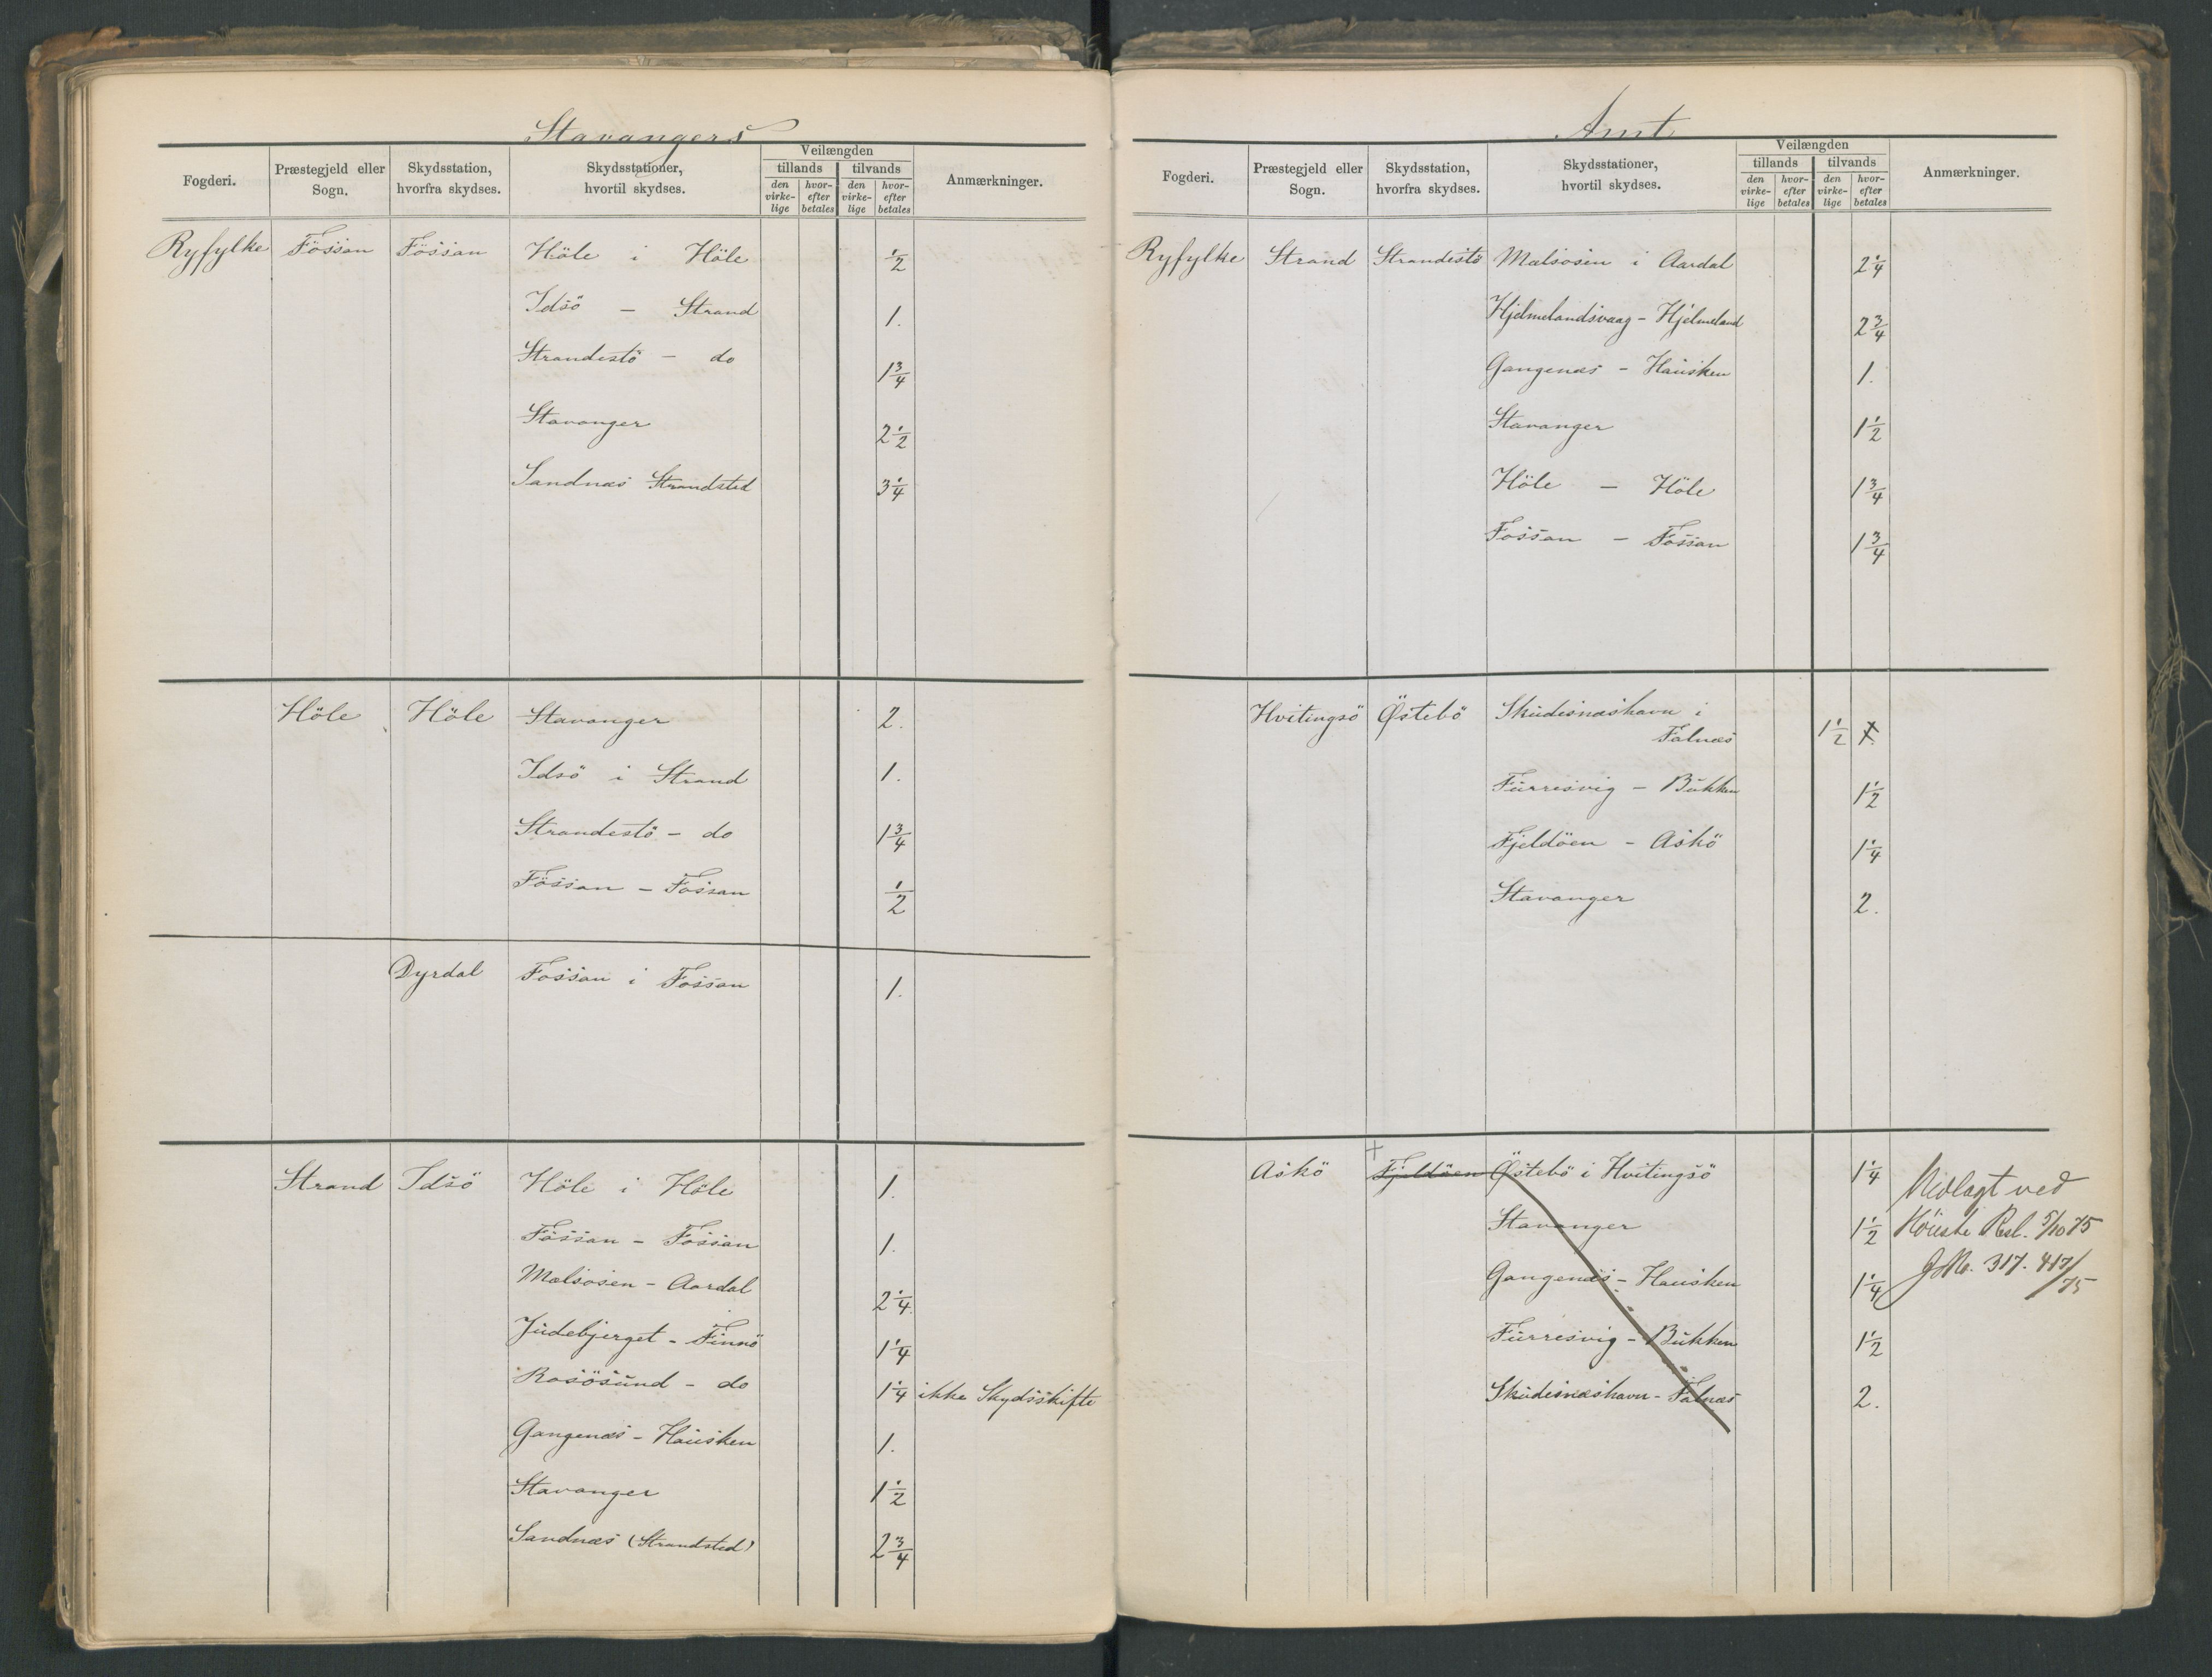 Stavangers
Fogderi.
Præstegjeld eller Sogn.
Skydsstation, hvorfra skydses.
Skydsstationer, hvortil skydses.
Veilængden
tillands tilvands
den virkelige hvorefter betales den virkelige hvorefter betales
Anmærkninger.
Ryfylke Fossan Fossan Höle i Höle 1/2
Idsö – Strand 1.
Strandestö – do 1 3/4
Stavanger 2 1/2
Sandnæs Strandsted 3 1/4
Höle Höle Stavanger 2.
Idsö i Strand 1.
Strandestö – do 1 3/4
Fossan – Fossan 1/2
Dyrdal Fossan i Fossan 1.
Strand Idsö Höle i Höle 1.
Fossan – Fossan 1.
Mælsosen – Aardal 2 1/4
Judebjerget – Finnö 1 1/4
Rosösund – do 1 1/4 ikke Skydsskifte
Gangenæs – Hausken 1.
Stavanger 1 1/2
Sandnæs (Strandsted) 2 3/4
Amt
Fogderi.
Præstegjeld eller Sogn.
Skydsstation, hvorfra skydses.
Skydsstationer, hvortil skydses.
Veilængden
tillands tilvands
den virkelige hvorefter betales den virkelige hvorefter betales
Anmærkninger.
Ryfylke Strand Strandestö Mælsosen i Aardal 2 1/4
Hjelmelandsvaag – Hjelmeland 2 3/4
Gangenæs – Hausken 1.
Stavanger 1 1/2
Höle – Höle 1 3/4
Fossan – Fossan 1 3/4
Hvitingsö Östebö Skudesnæshavn i
Falnæs 1 1/2
Furresvig – Bukken 1 1/2
Fjeldöen – Askö 1 1/4
Stavanger 2.
Askö Fjeldöen Östebö i Hvitingsö 1 1/4 Nedlagt ved
Stavanger 1 1/2 Höieste Resl. 5/10 75
Gangenæs – Hausken 1 1/4 JNo. 317. 417/75
Furresvig – Bukken 1 1/2
Skudesnæshavn – Falnæs 2.